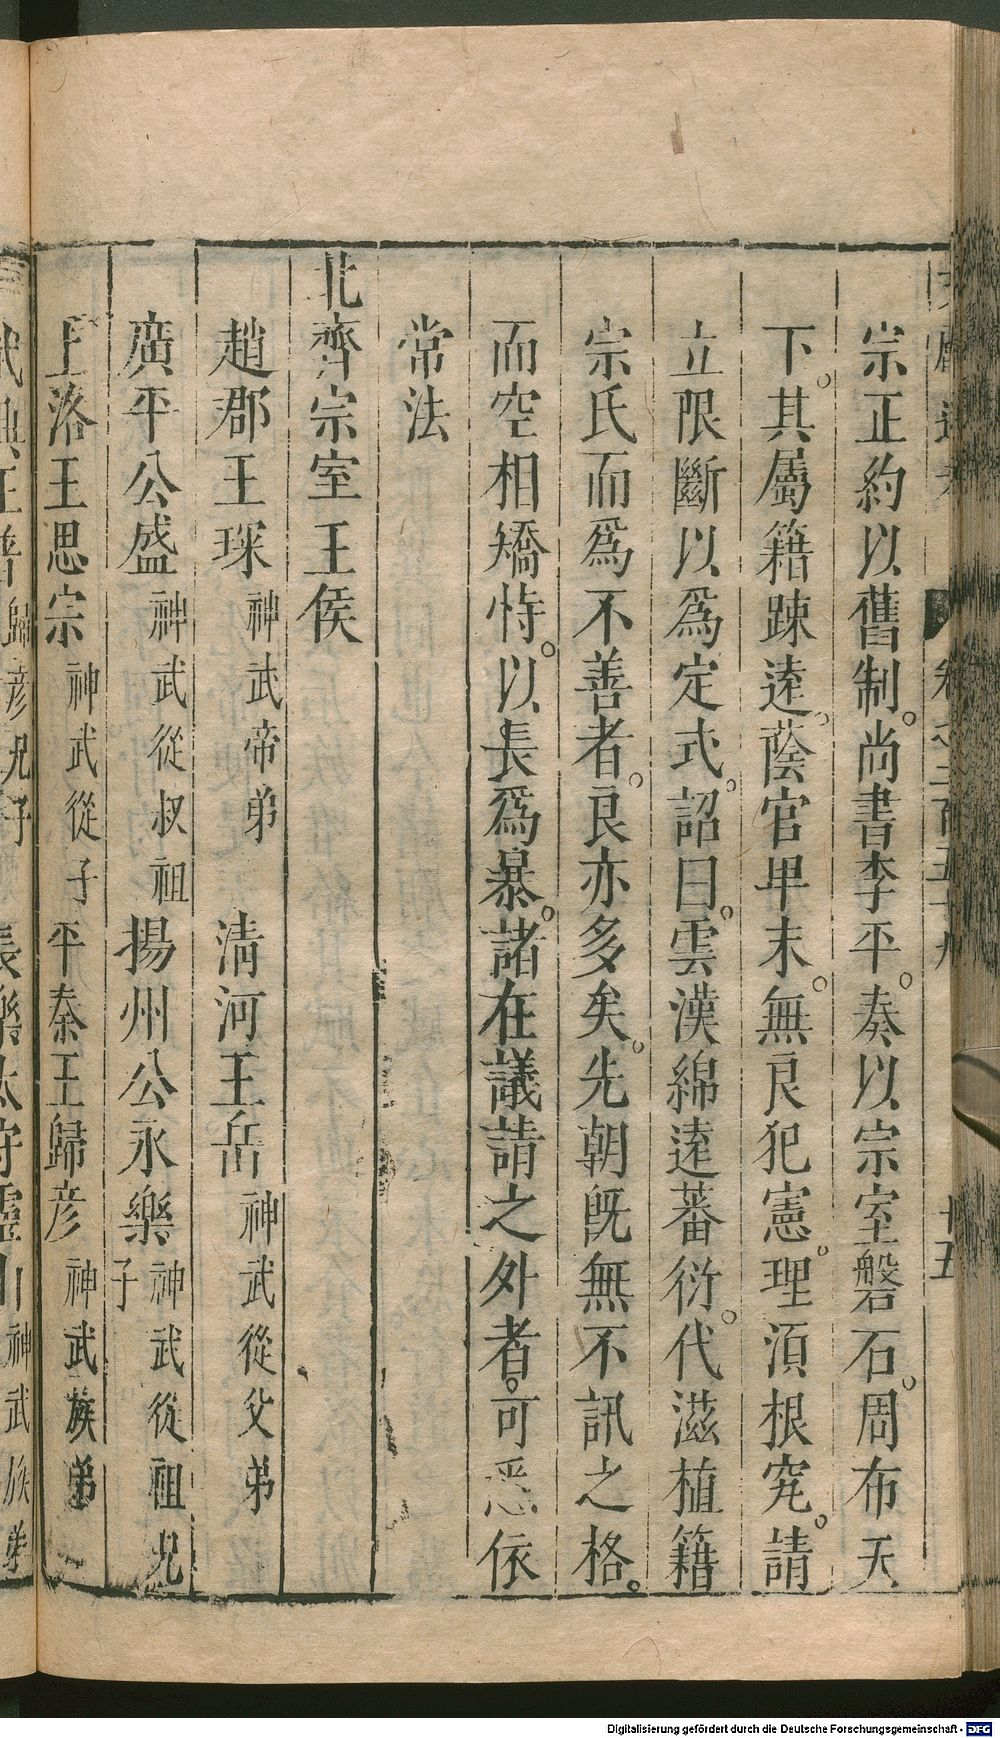 宗正約以舊制。尚書李平。奏以宗室磐石。周布天
下。其屬籍踈遠。蔭官卑末。無良犯憲。理須根究。請
立限斷以爲定式。詔曰。雲漢綿遠蕃衍。代滋植籍
宗氏而爲不善者。良亦多矣。先朝旣無不訊之格。
而空相矯恃。以長爲暴。諸在議請之外者。可悉依
常法
北齊宗室王侯
趙郡王琛 神武帝弟 清河王岳 神武從父弟
廣平公盛 神武從叔祖 揚州公永樂 神武從祖兄子
上洛王思宗 神武從子 平秦王歸彦 神武族弟
武興王普 歸彦兄子 長樂太守靈山 神武族弟
Digitalisierung gefördert durch die Deutsche Forschungsgemeinschaft - DFG